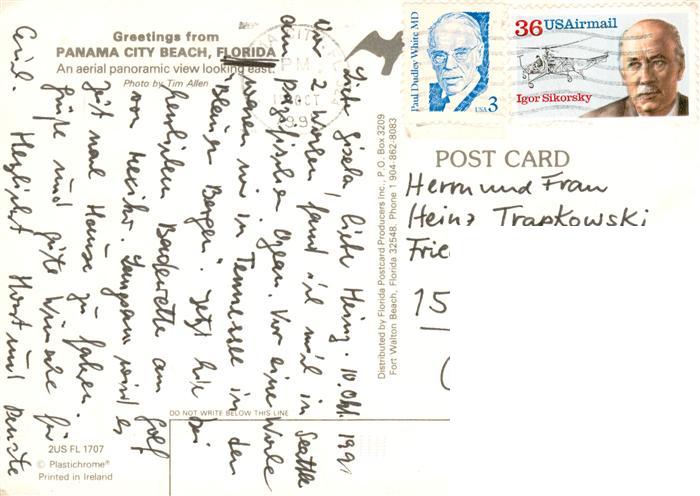 Greetings from
PANAMA CITY BEACH, FLORIDA
An aerial panoramic view looking east.
Photo by Tim Allen
PM
OCT
Paul Dudley White MD
USA 3
36 USAirmail
Igor Sikorsky
POST CARD
Herrn und Frau
Heinz Trapkowski
Frie
15
Distributed by Florida Postcard Producers Inc., P.O. Box 3209
Fort Walton Beach, Florida 32548. Phone 1 904-862-8083
Liebe Gisela, lieber Heinz. 10. Okt. 1991
Vor 2 Wochen fand ihr mich in Seattle
am Pazifischen Ozean. Vor eine Woche
waren wir in Tennessee in den
"Blauen Bergen". Jetzt hier bei
herrlichem Badewetter am Golf
von Mexiko. Langsam wird es
Zeit mal Hause zu fahren.
Grüße und gute Wünsche für
Euch. Herzlichst Horst und
DO NOT WRITE BELOW THIS LINE
2US FL 1707
© Plastichrome®
Printed in Ireland